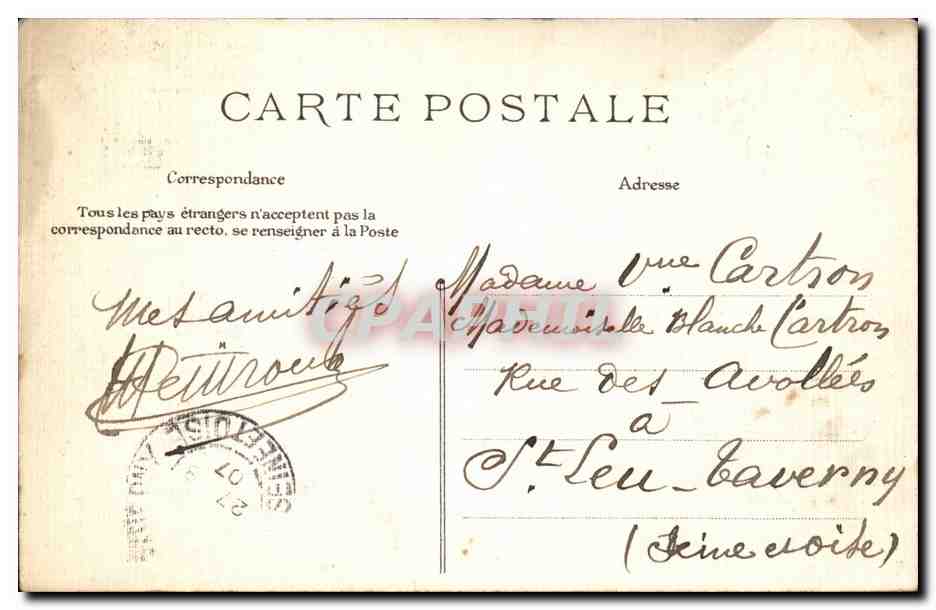 CARTE POSTALE
Correspondance
Tous les pays étrangers n'acceptent pas la
correspondance au recto, se renseigner à la Poste
Mes amitiés
Adresse
Madame Vve Cartron
Mademoiselle Blanche Cartron
Rue des Avollées
a
St Leu - Taverny
(Seine et oise)
SEINE-ET-OISE
27
07
CPARPHIL